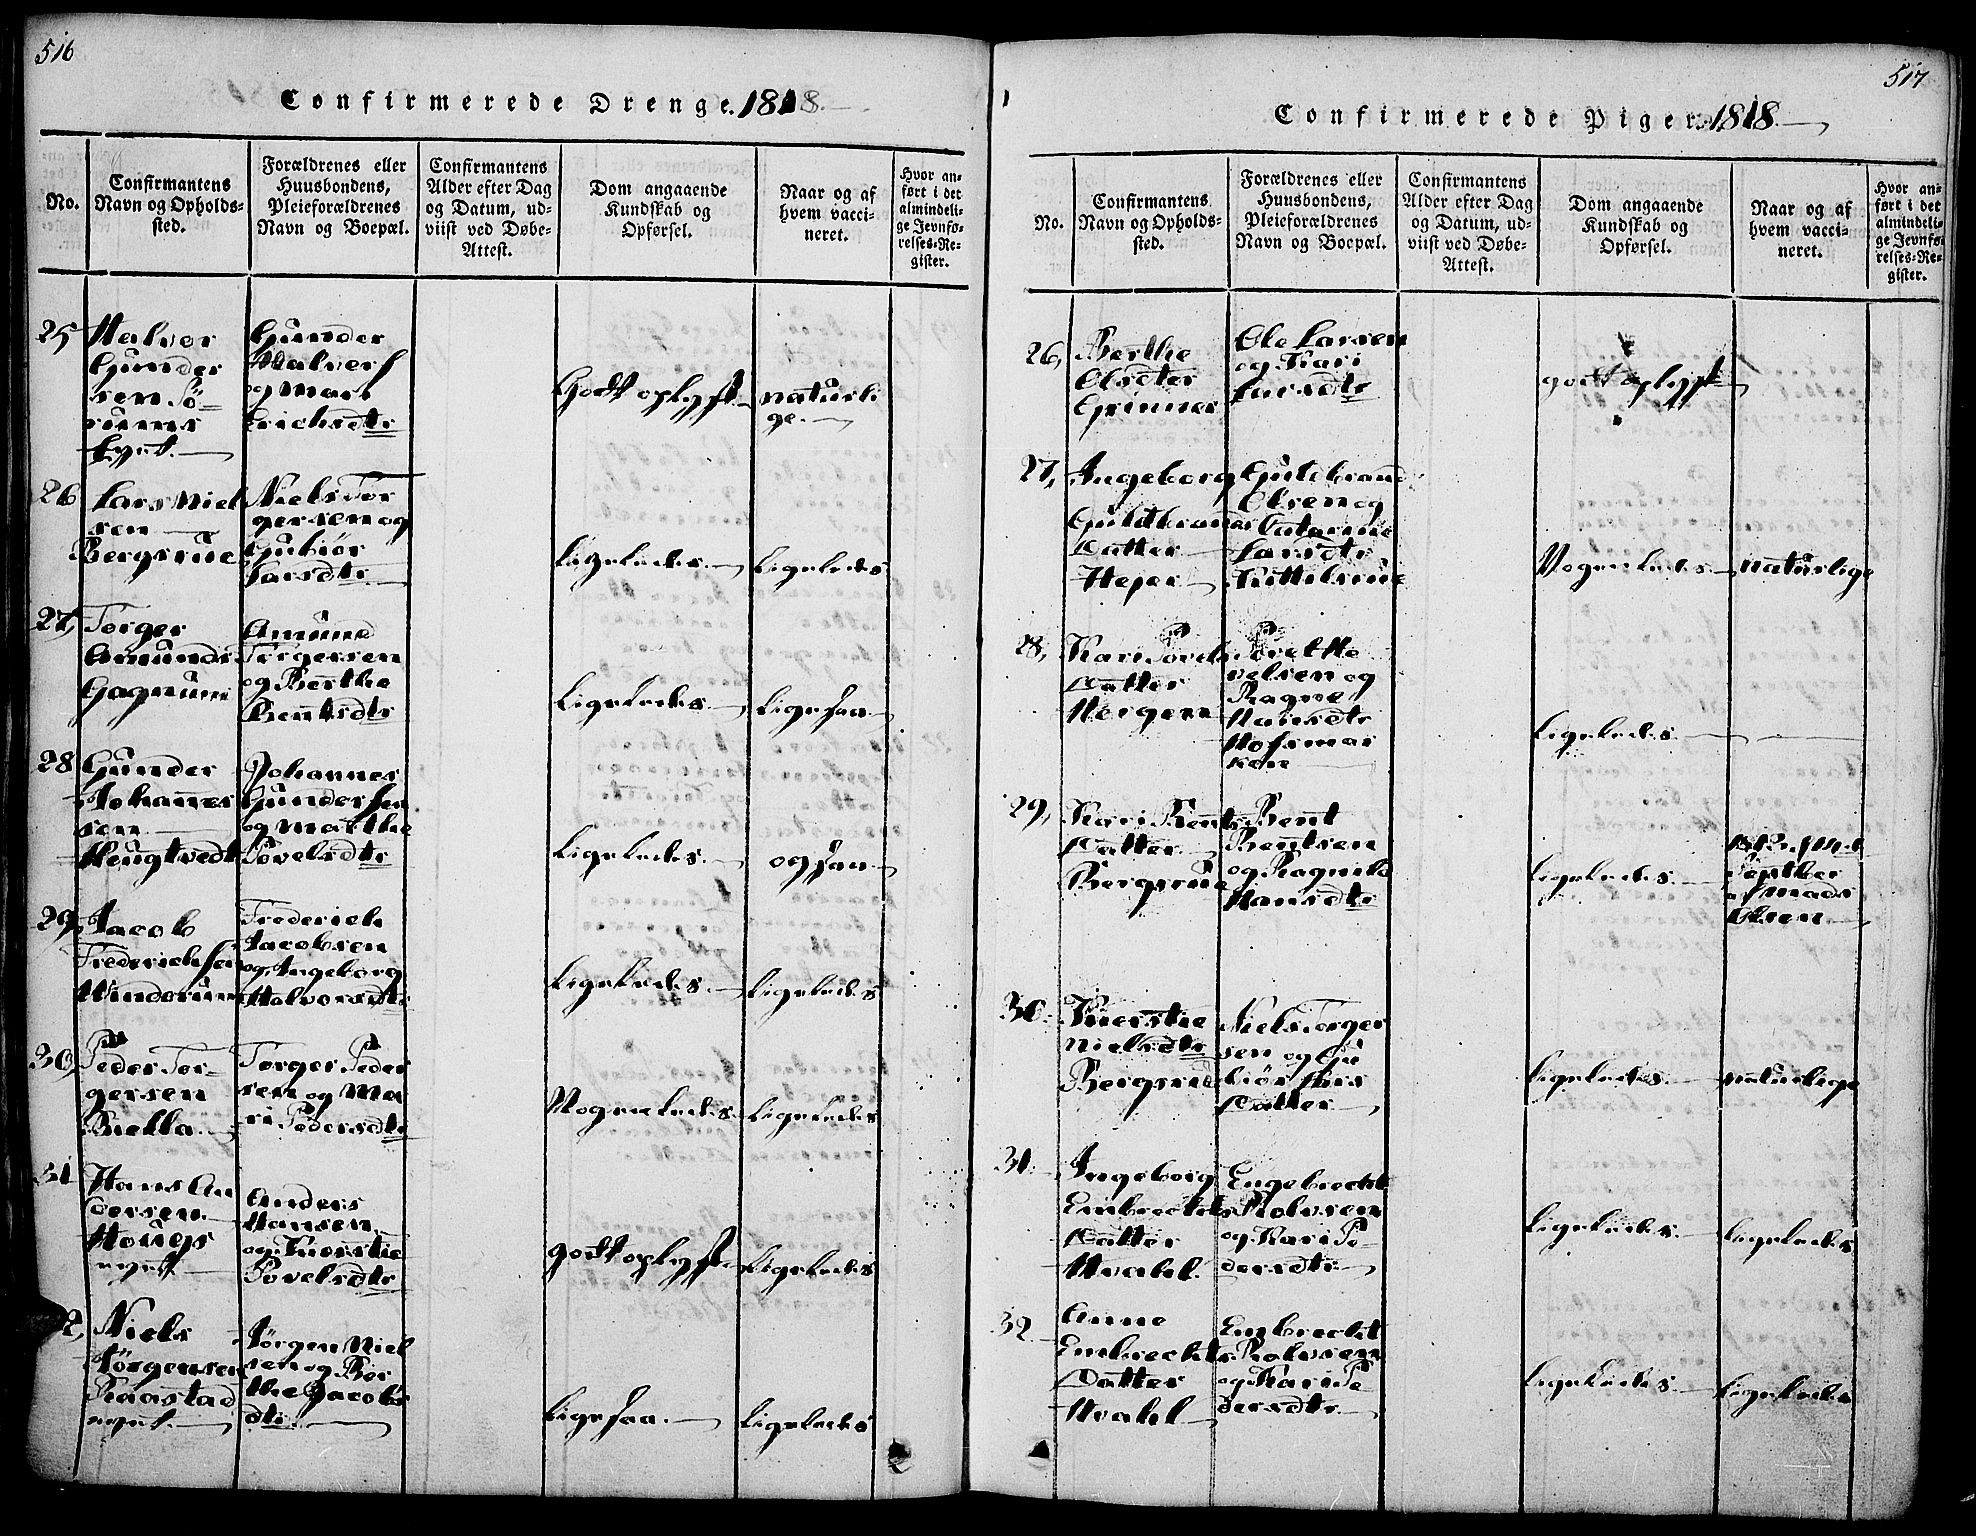 516
Confirmerede Drenge. 1818.
No.
Confirmantens
Navn og Opholds-
sted.
Forældrenes eller
Huusbondens,
Pleieforældrenes
Navn og Boepæl.
Confirmantens
Alder efter Dag
og Datum, ud-
viist ved Døbe-
Attest.
Dom angaaende
Kundskab og
Opførsel.
Naar og af
hvem vacci-
neret.
Hvor an-
ført i det
almindeli-
ge Jevnfø-
relses-Re-
gister.
25
Halvor
Gunder
sen Sö-
rums
Eyet.
Gunder
Halvors
og Mari
Erichsdtr
Godt oplyst.
naturli
ge.
26
Lars Niel
sen
Bergsrue
Niels Tor
gersen og
Gubiör
Larsdtr
Ligeledes.
Ligeledes
27,
Torger
Amunds
Gagnum
Amund
Torgersen
og Berthe
Bentsdtr
Ligeledes.
Ligesaa
28
Gunder
Johannes
sen
Haugtvedt
Johannes
Gundersen
og Marthe
Povelsdtr
Ligeledes.
ogsaa
29,
Jacob
Frederichsen
Winderum
Frederich
Jacobsen
og Ingeborg
Halvorsdtr
Ligeledes.
Ligeledes
30,
Peder Tor-
gersen
Biella.
Torger Peder
sen og Ma
ri Pedersdtr
Nogenledes.
Ligeledes
31
Hans An
dersen
Hougs
eyet
Anders
Hansen
og Kierstie
Povelsdtr
godt oplyst.
Ligeledes
2,
Niels
Jörgensen
Raastad
eyet.
Jörgen Niel
sen og Ber
the Jacobs
dtr.
Ligesaa.
Ligeledes
517
Confirmerede Piger. 1818.
No.
Confirmantens
Navn og Opholds-
sted.
Forældrenes eller
Huusbondens,
Pleieforældrenes
Navn og Boepæl.
Confirmantens
Alder efter Dag
og Datum, ud-
viist ved Døbe-
Attest.
Dom angaaende
Kundskab og
Opførsel.
Naar og af
hvem vacci-
neret.
Hvor an-
ført i det
almindeli-
ge Jevnfø-
relses-Re-
gister.
26,
Berthe
Olsdtter
Grinner
Ole Larsen
og Kari
Larsdtr
godt oplyst
27,
Ingeborg
Guldbrands
Datter
Hejer
Guldbrand
Olsen og
Catarine
Larsdtr
Kittilsrue
Nogenledes.
naturlige
28,
Kari Povels
Datter
Horgen
Povel
velsen og
Ragne
Hansdtr
Hofsmar
ken
Ligeledes.
29,
Kari Bents
Datter
Bergsrue
Bent
Bentsen
og Ragnild
Hansdtr
Ligeledes.
Mads
Olsen
30.
Kierstie
Nielsdtr
Bergsrud
Niels Torger
sen og Gu
biör Lars
Datter
Ligeledes.
naturlige
31.
Ingeborg
Embrechts
Datter
Hvahl
Engebrecht
Rolvsen
og Kari Pe-
dersdtr.
Ligeledes.
Ligeledes
32
Anne
Embrechts
Datter
Hvahl
Embrecht
Rolvsen
og Kari Pe
dersdtr.
Ligeledes.
Ligeledes